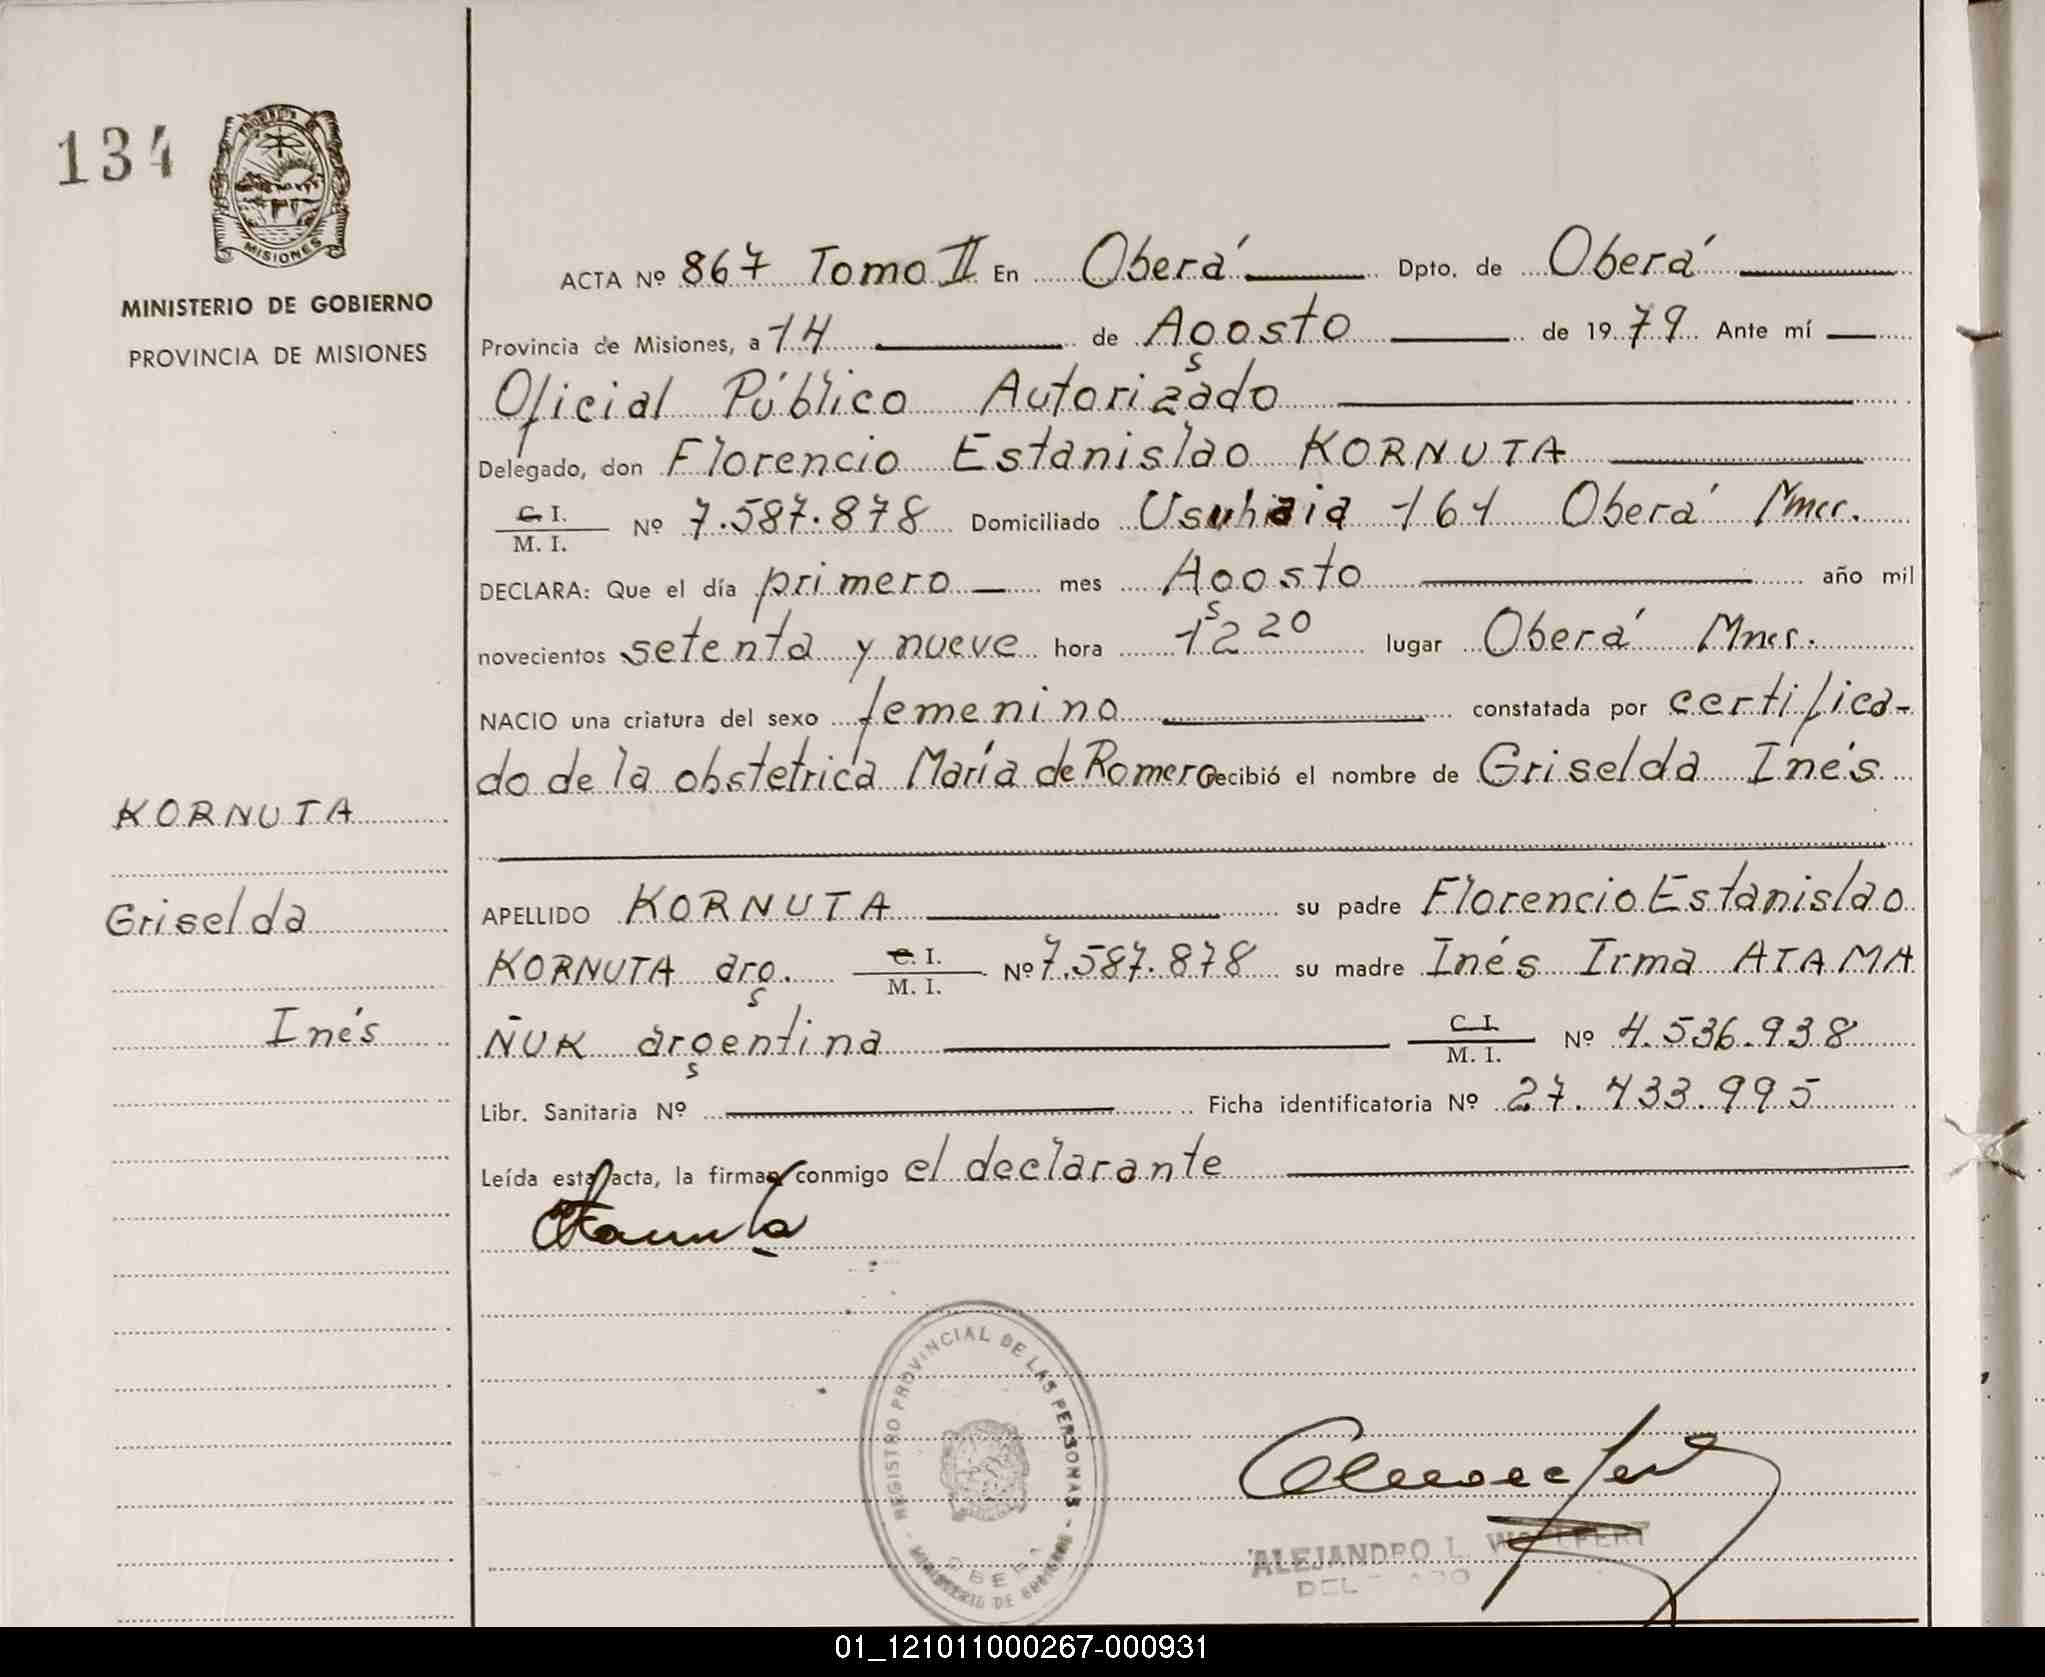 134
MISIONES
MINISTERIO DE GOBIERNO
PROVINCIA DE MISIONES
ACTA Nº 867 Tomo II En Oberá Dpto. de Oberá
Provincia de Misiones, a 14 de Agosto de 1979 Ante mí
Oficial Público Autorizado
Delegado, don Florencio Estanislao KORNUTA
C. I.
M. I. Nº 7.587.878 Domiciliado Usuhaia 161 Oberá Mnes.
DECLARA: Que el día primero mes Agosto año mil
novecientos setenta y nueve hora 12 20 lugar Oberá Mnes.
NACIO una criatura del sexo femenino constatada por certifica-
do de la obstetrica María de Romero recibió el nombre de Griselda Inés
KORNUTA
Griselda
Inés
APELLIDO KORNUTA su padre Florencio Estanislao
KORNUTA arg. C. I.
M. I. Nº 7.587.878 su madre Inés Irma ATAMA
ÑUK argentina C. I.
M. I. Nº 4.536.938
Libr. Sanitaria Nº Ficha identificatoria Nº 27.433.995
Leída esta acta, la firman conmigo el declarante
REGISTRO PROVINCIAL DE LAS PERSONAS - MINISTERIO DE GOBIERNO -
OBERA
ALEJANDRO L.
01_121011000267-000931